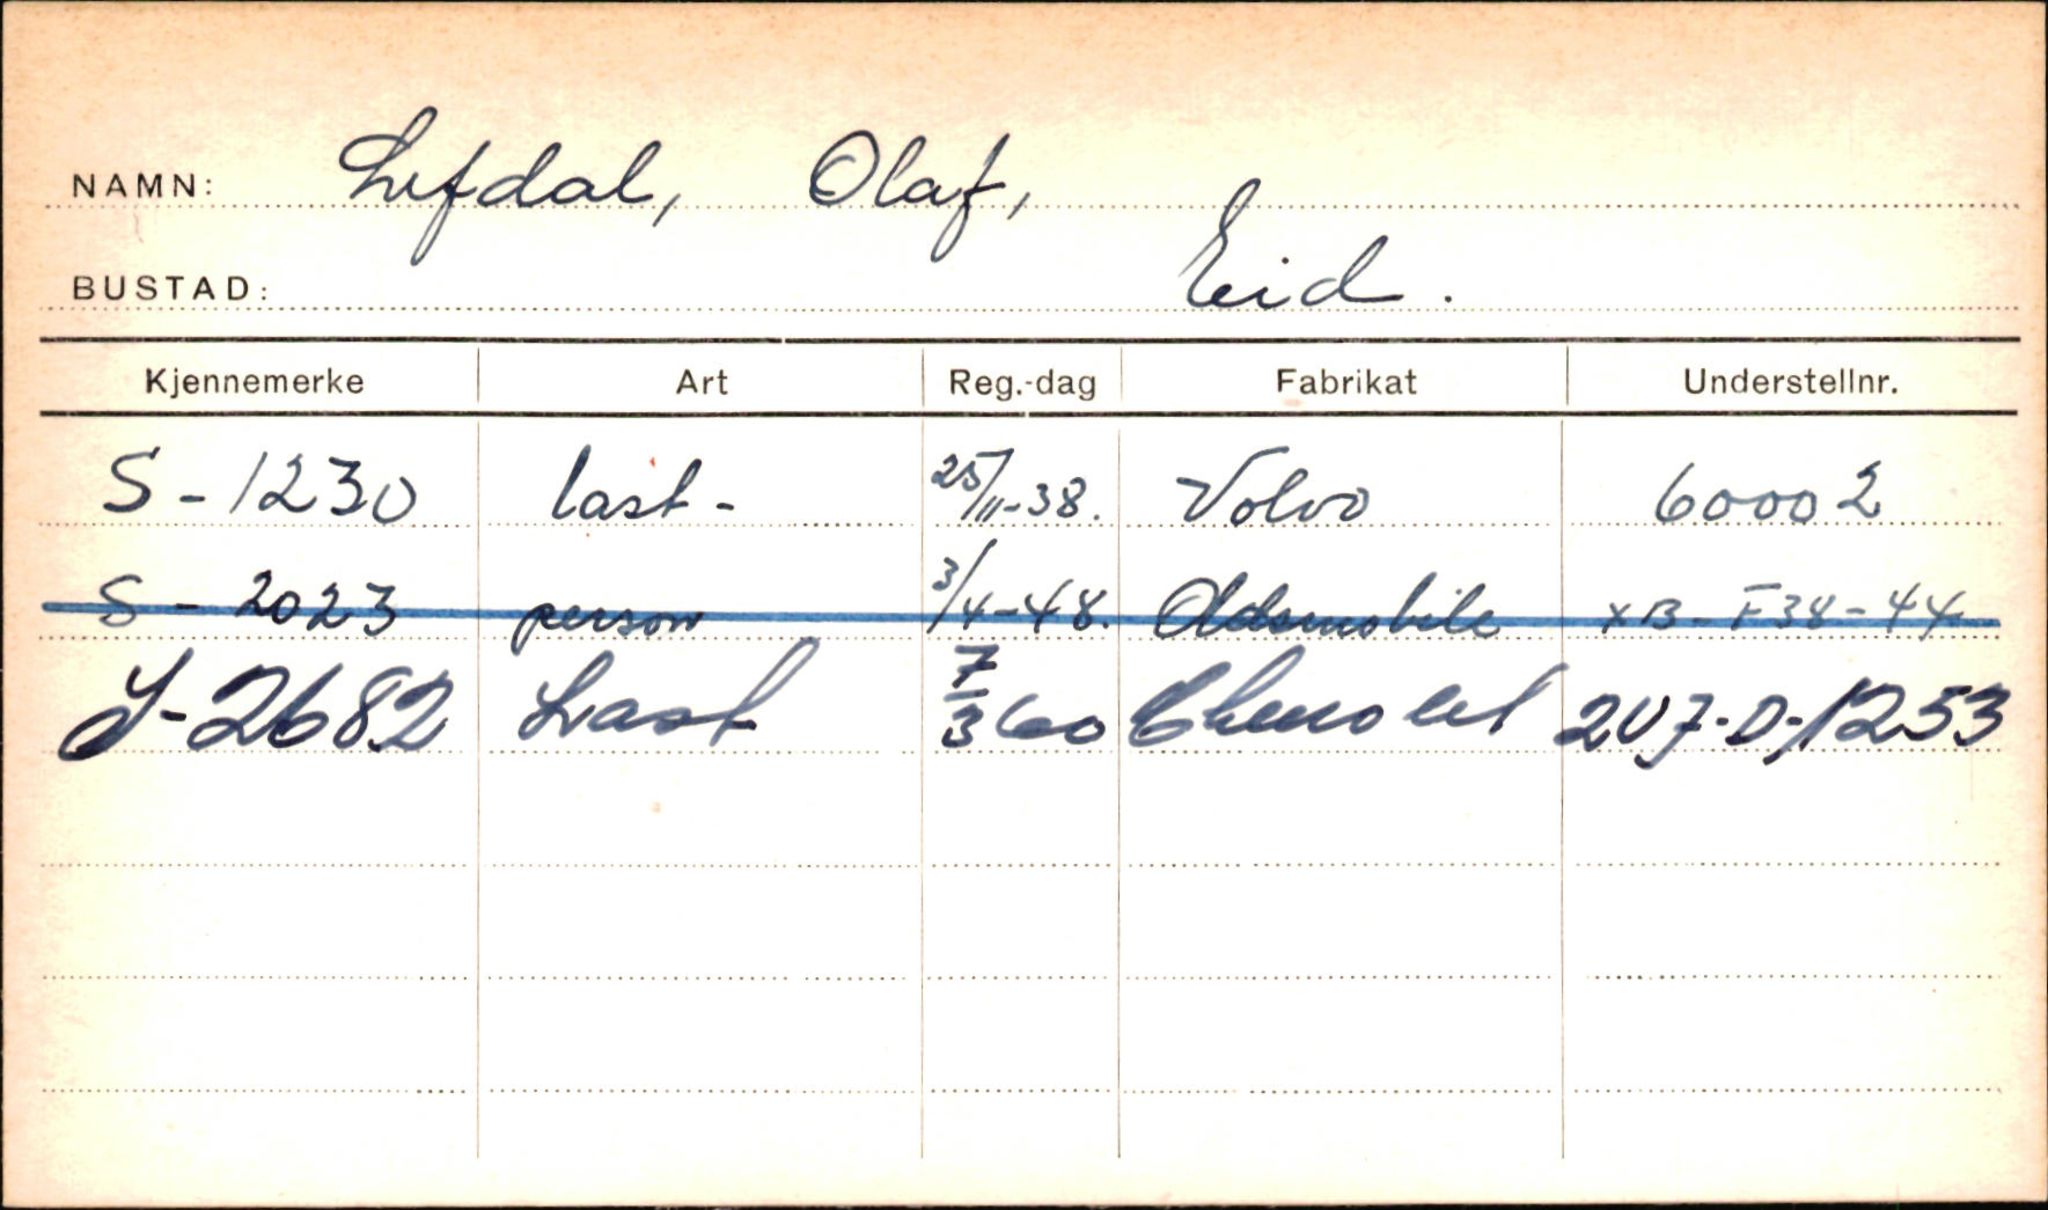 NAMN: Lefdal, Olaf,
BUSTAD: Eid.
Kjennemerke Art Reg.-dag Fabrikat Understellnr.
S-1230 last- 25/11-38. Volvo 60002
S-2023 person 3/4-48. Oldsmobile XB-F38-44
S-2682 Last 7/3 60 Chevrolet 2U7-D-1253